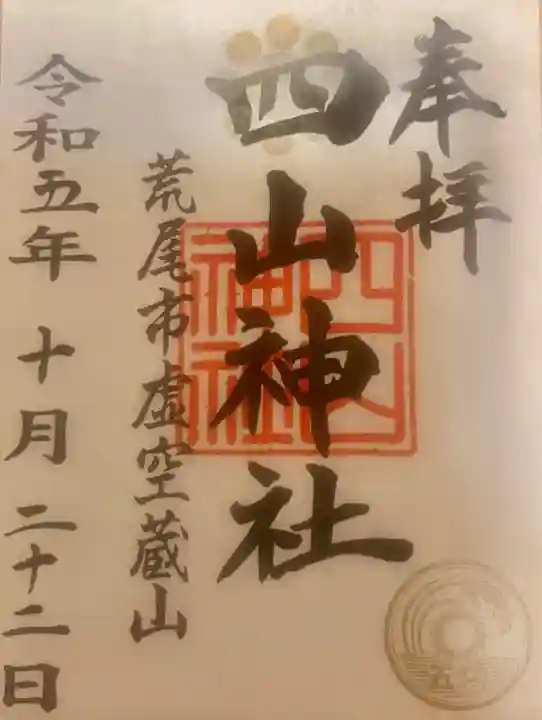 奉拝
四山神社
四山神社
荒尾市虚空蔵山
令和五年 十月 二十二日
五円